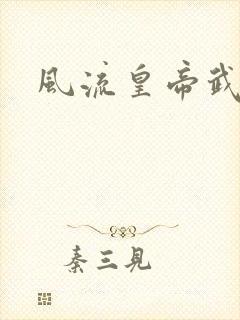 風流皇帝武
秦三見